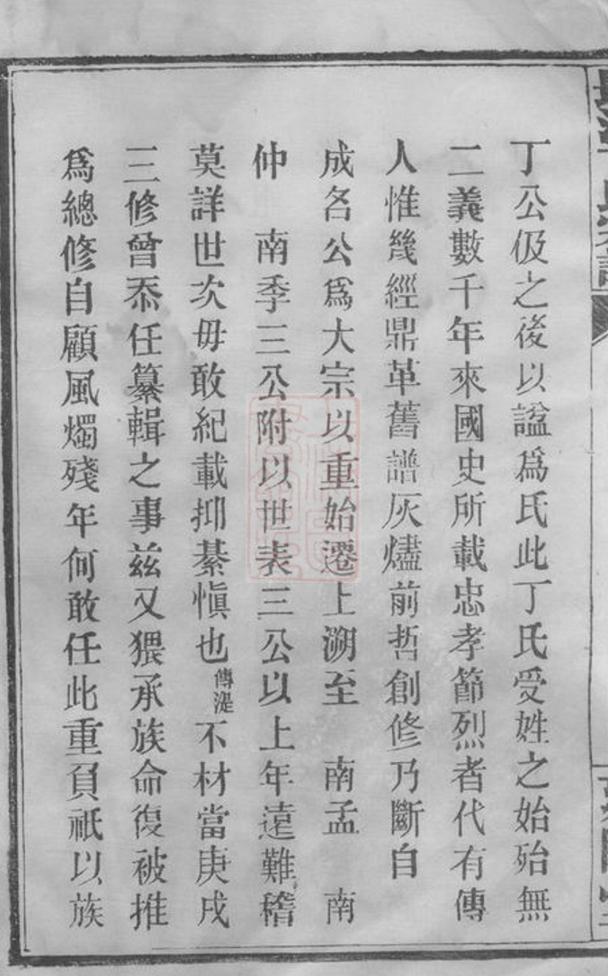 丁公伋之後以諡爲氏此丁氏受姓之始殆無
二義數千年來國史所載忠孝節烈者代有傳
人惟幾經鼎革舊譜灰燼前哲創修乃斷自
成名公爲大宗以重始遷上溯至 南孟 南
仲 南季三公附以世表三公以上年遠難稽
莫詳世次毋敢紀載抑綦愼也傳湜不材當庚戌
三修曾忝任纂輯之事兹又猥承族命復被推
爲總修自顧風燭殘年何敢任此重負祇以族